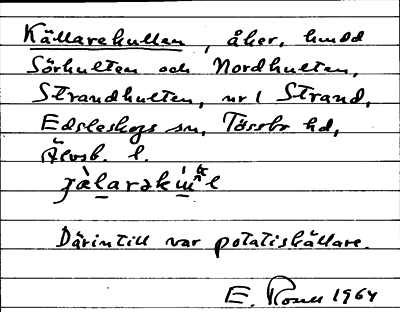 Källarekullen, åker, hmdd
Sörhulten och Nordhulten,
Strandhulten, nr 1 Strand,
Edsleskogs sn, Tössbo hd,
Älvsb. l.
Därintill var potatiskällare.
E. 1964